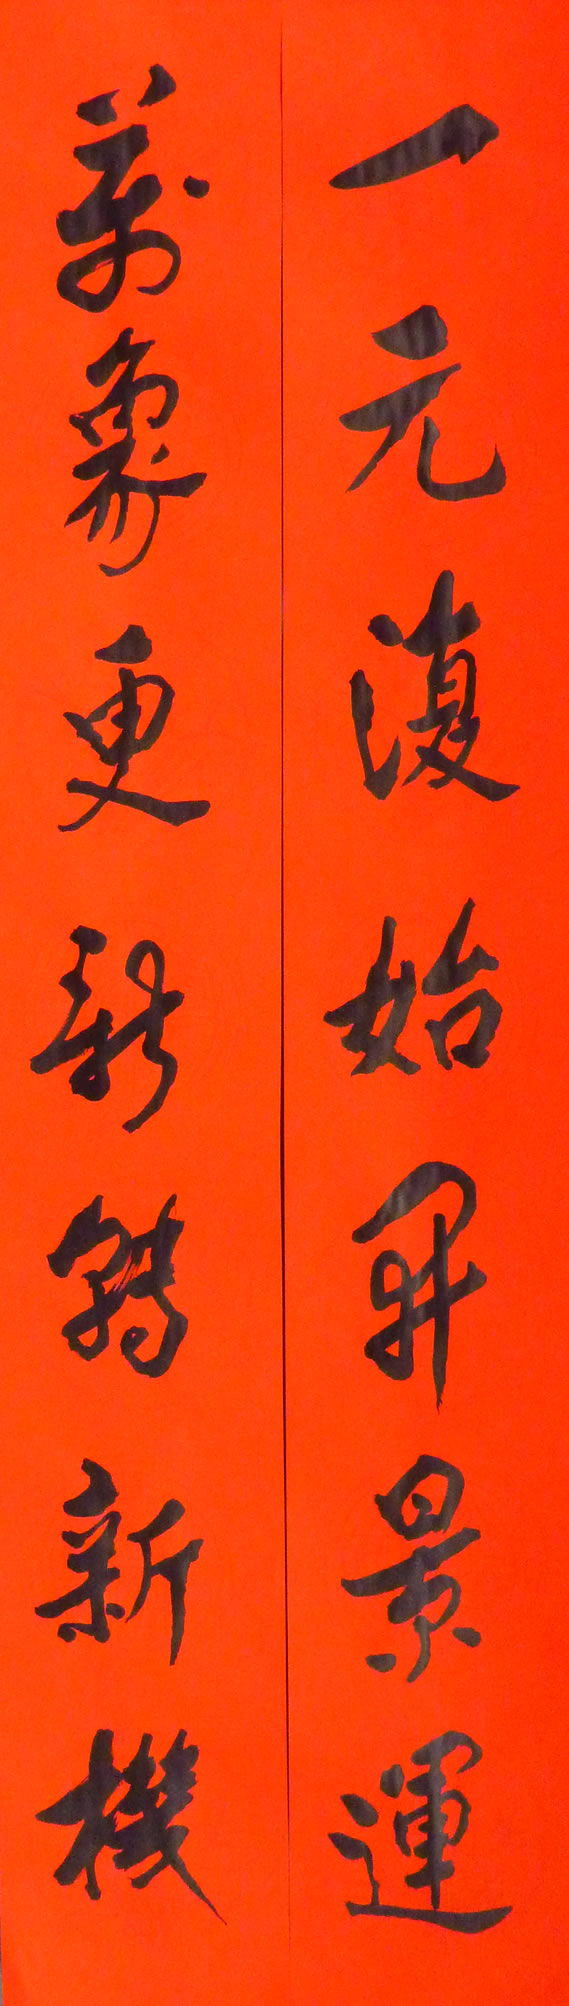 一元復始開景運
萬象更新轉新機